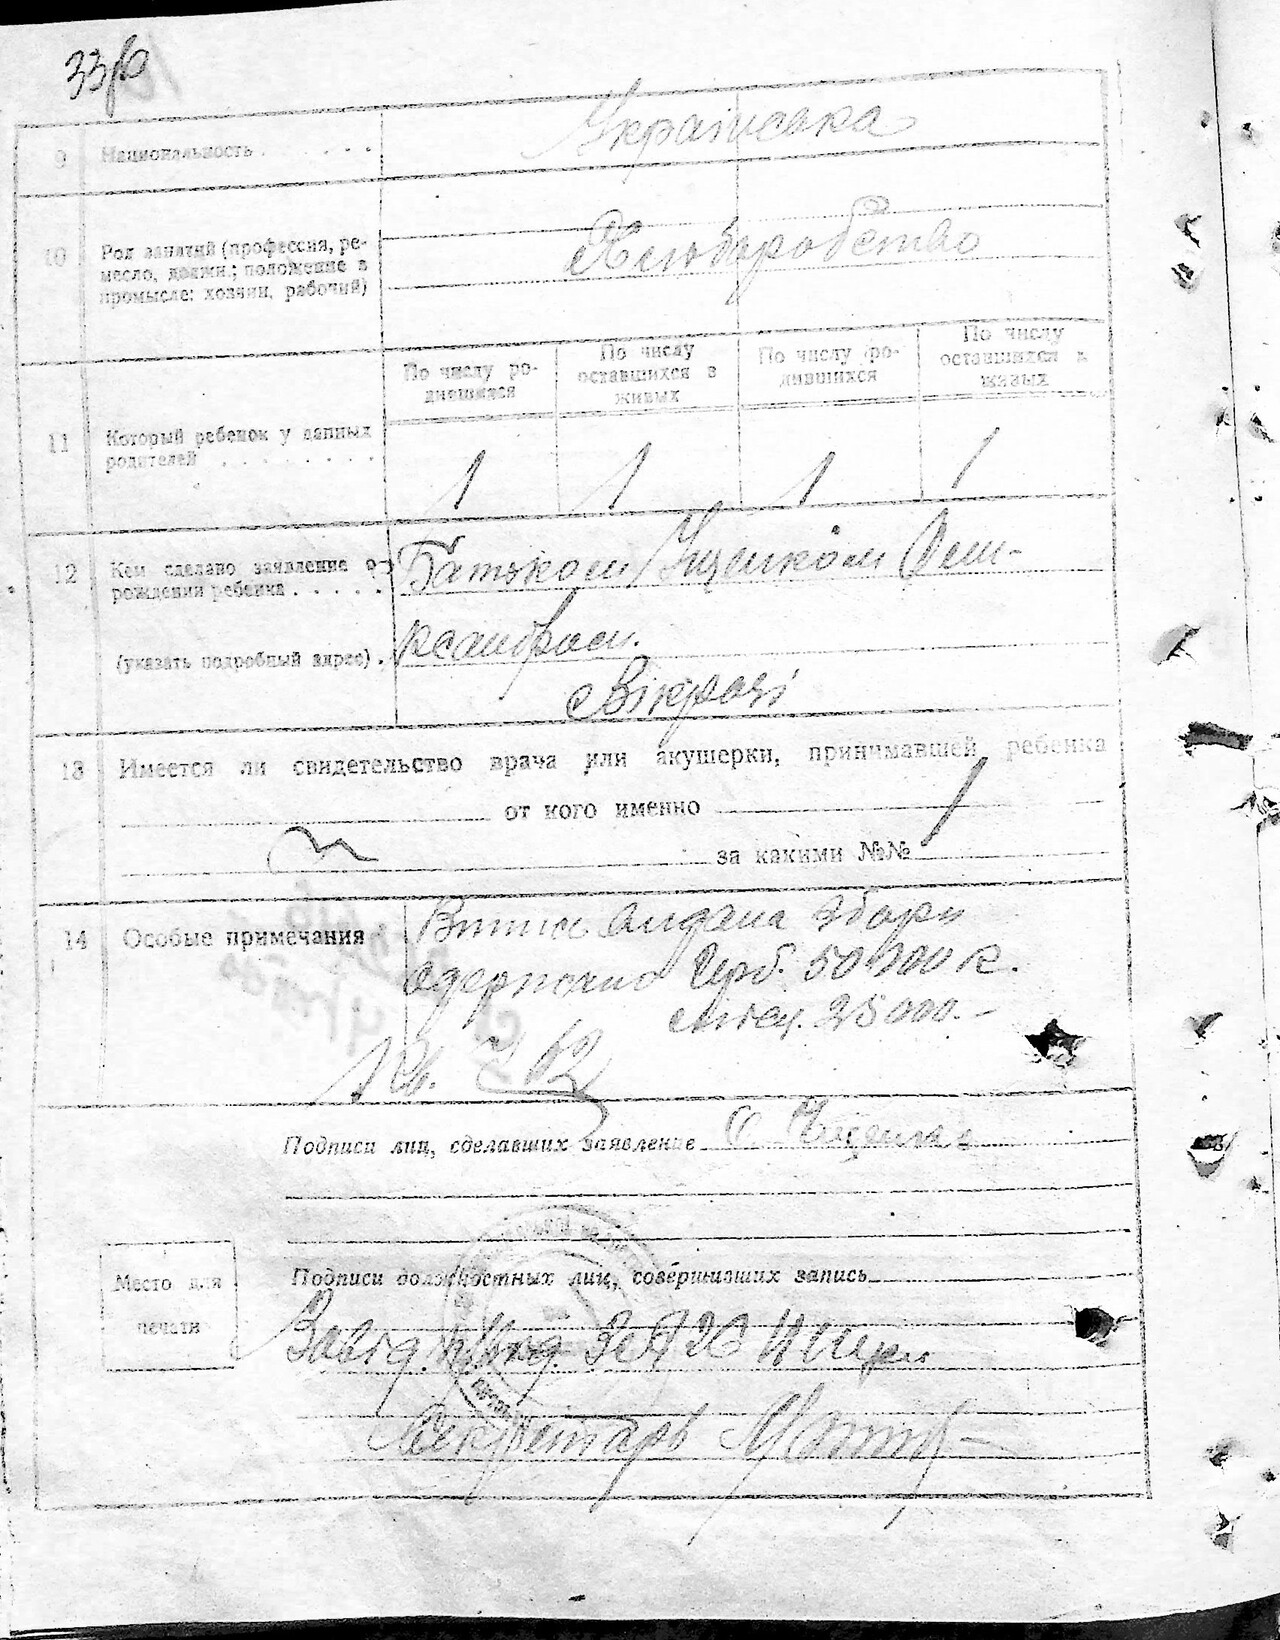 9 Национальность . . . . . . Українська
10 Род занятий (профессия, ре-
месло, должн.; положение в
промысле: хозяин, рабочий)
Хліборобство
По числу ро-
дившихся
По числу
оставшихся в
живых
По числу ро-
дившихся
По числу
оставшихся в
живых
11 Который ребенок у данных
родителей . . . . . . . .
1 1 1 1
12 Кем сделано заявление о
рождении ребенка . . . . .
Батьком Ищенком Оле-
(указать подробный адрес) .
ксандром.
13 Имеется ли свидетельство врача или акушерки, принимавшей ребенка
от кого именно
за какими №№
14 Особые примечания
Випис видана збори
одержано Герб. 50000 к.
Місц. 25000.-
Подписи лиц, сделавших заявление О.
Подписи должностных лиц, совершивших запись
Место для
печати
Завід.
Секретарь